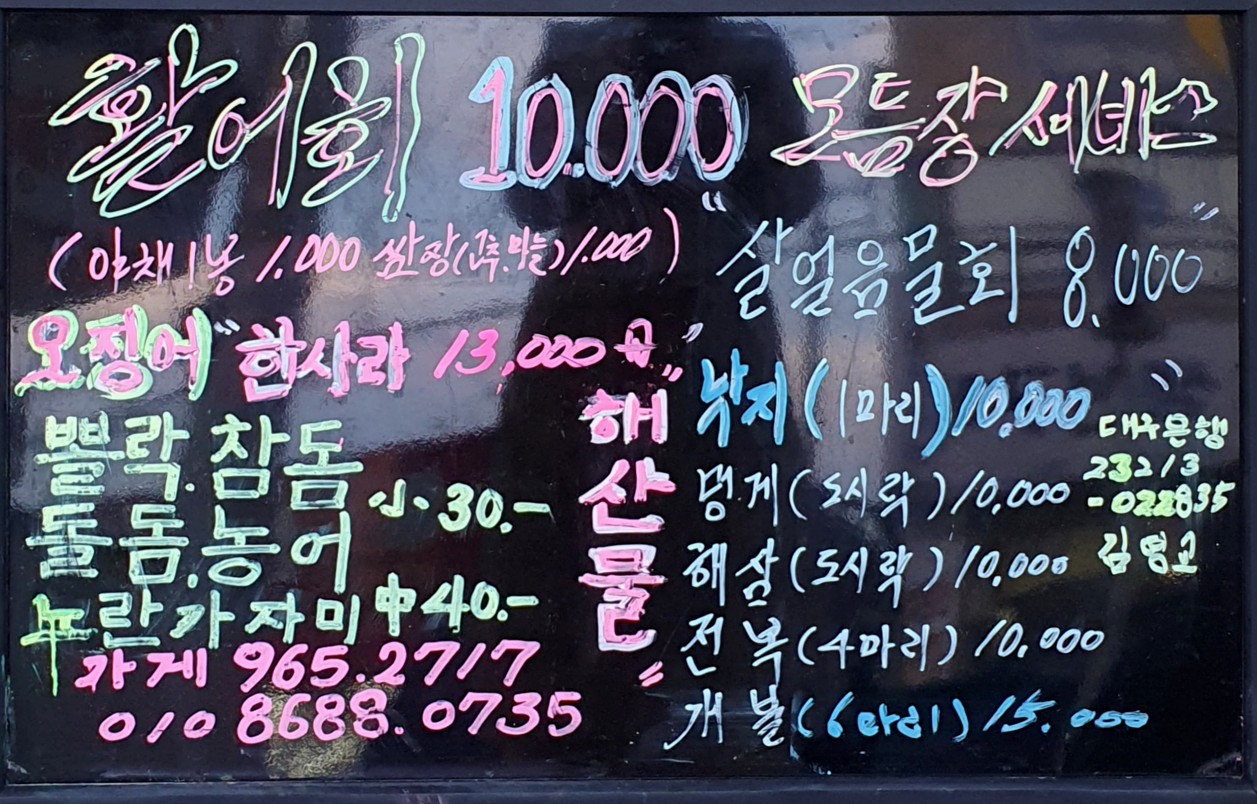 활어회 10.000 모듬장 서비스
(야채1봉 1.000 쌈장(고추.마늘)1.000)
"살얼음물회 8.000"
오징어 "한사라 13,000"
"해산물"
낙지(1마리)10,000
멍게(도시락)10,000
해삼(도시락)10,000
전복(4마리)10,000
개불(6마리)15.000
뽈락.참돔
돌돔.농어
小.30.-
누란가자미 中40.-
가게 965.2717
010 8688.0735
대구은행
23213
-022835